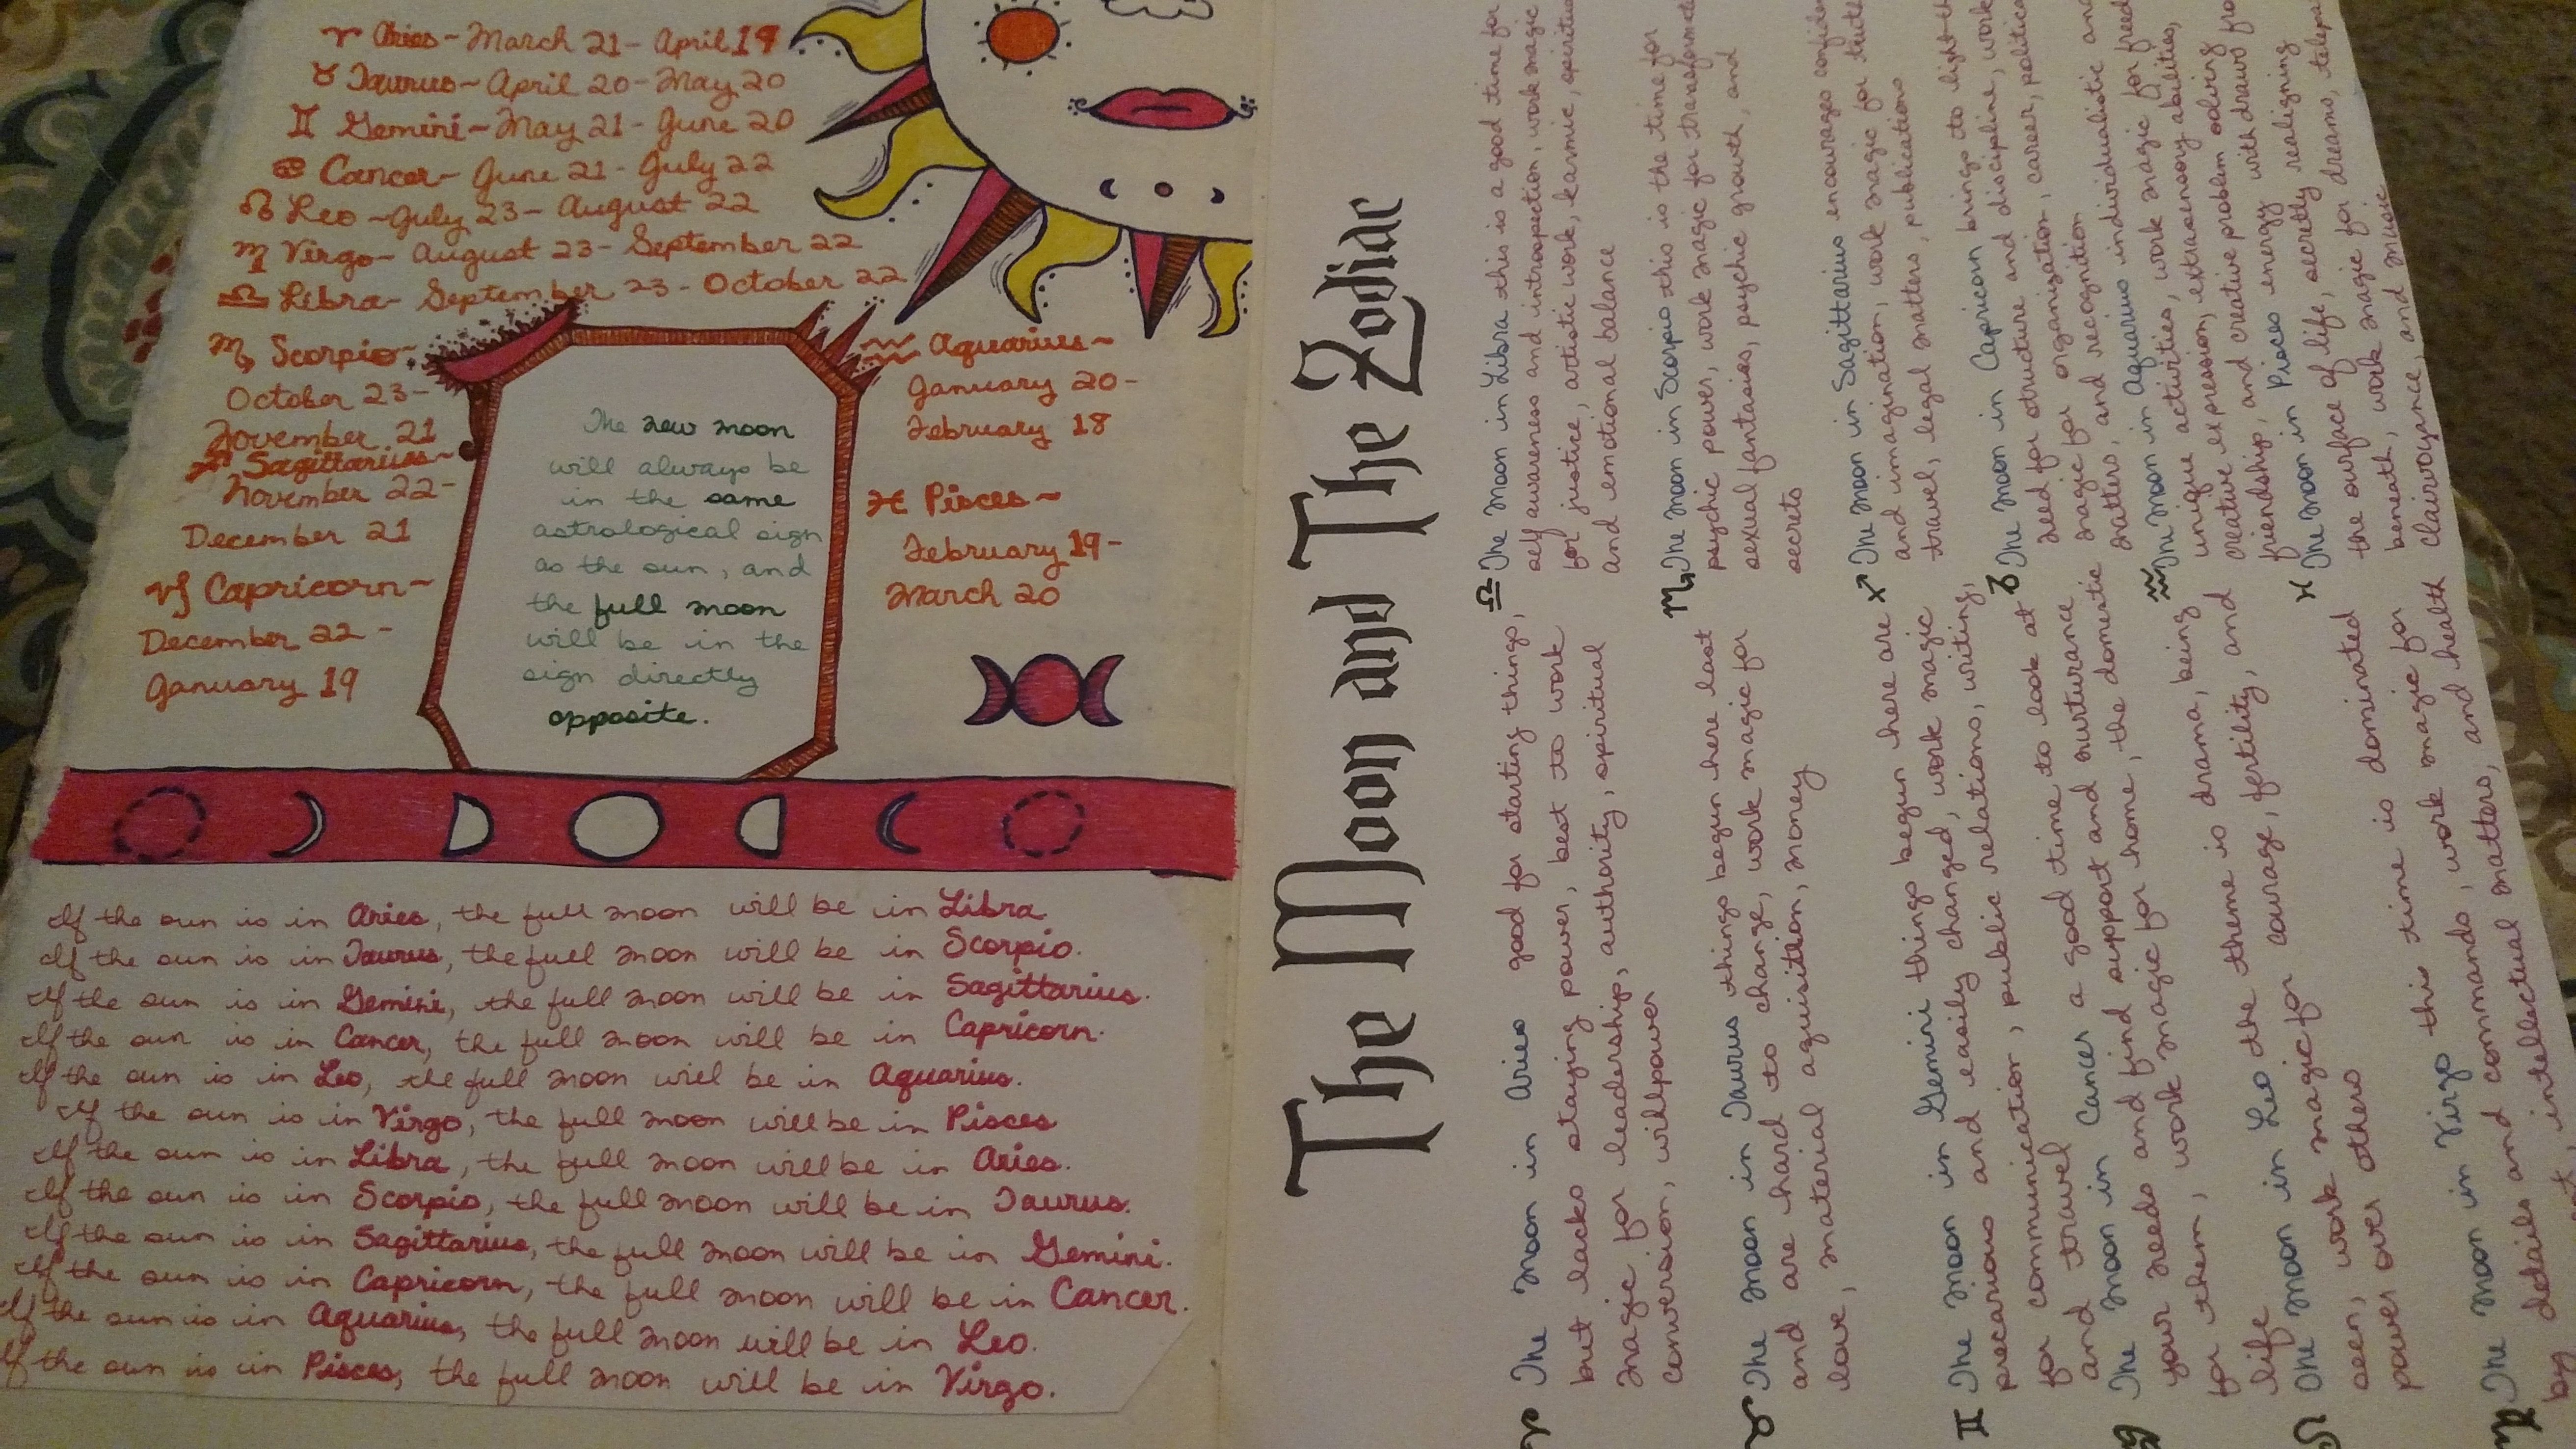 ♈ Aries~March 21-April 19
♉ Taurus~April 20-May 20
♊ Gemini~May 21-June 20
♋ Cancer~June 21-July 22
♌ Leo~July 23-August 22
♍ Virgo~August 23-September 22
♎ Libra~September 23-October 22
♏ Scorpio~
October 23-
November 21
♐ Sagittarius~
November 22-
December 21
♑ Capricorn~
December 22-
January 19
♒ Aquarius~
January 20-
February 18
♓ Pisces~
February 19-
March 20
The new moon
will always be
in the same
astrological sign
as the sun, and
the full moon
will be in the
sign directly
opposite.
If the sun is in Aries, the full moon will be in Libra.
If the sun is in Taurus, the full moon will be in Scorpio.
If the sun is in Gemini, the full moon will be in Sagittarius.
If the sun is in Cancer, the full moon will be in Capricorn.
If the sun is in Leo, the full moon will be in Aquarius.
If the sun is in Virgo, the full moon will be in Pisces
If the sun is in Libra, the full moon will be in Aries.
If the sun is in Scorpio, the full moon will be in Taurus.
If the sun is in Sagittarius, the full moon will be in Gemini.
If the sun is in Capricorn, the full moon will be in Cancer.
If the sun is in Aquarius, the full moon will be in Leo.
If the sun is in Pisces, the full moon will be in Virgo.
The Moon and The Zodiac
♈ The Moon in Aries good for starting things,
but lacks staying power, best to work
magic for leadership, authority, spiritual
conversion, willpower
♉ The Moon in Taurus things begun here last
and are hard to change, work magic for
love, material aquisition, money
♊ The Moon in Gemini things begun here are
precarious and easily changed, work magic
for communication, public relations, writing,
and travel
♋ The Moon in Cancer a good time to look at
your needs and find support and nurturance
for them, work magic for home, the domestic
life
♌ The Moon in Leo the theme is drama, being
seen, work magic for courage, fertility, and
power over others
♍ The Moon in Virgo this time is dominated
by details and commands, work magic for
intellectual matters, and health
♎ The Moon in Libra this is a good time for
self awareness and introspection, work magic
for justice, artistic work, karmic, spiritual
and emotional balance
♏ The Moon in Scorpio this is the time for
psychic power, work magic for
sexual fantasies, psychic growth, and
secrets
♐ The Moon in Sagittarius encourages
and imagination, work magic for truth
travel, legal matters, publications
♑ The Moon in Capricorn brings to light the
need for structure and discipline, work
magic for organization, career, political
matters, and recognition
♒ The Moon in Aquarius individualistic and
unique activities, work magic for
creative expression, extrasensory abilities,
friendship, and creative problem solving
♓ The Moon in Pisces energy withdraws from
the surface of life, secretly realigning
beneath, work magic for dreams,
clairvoyance, and music